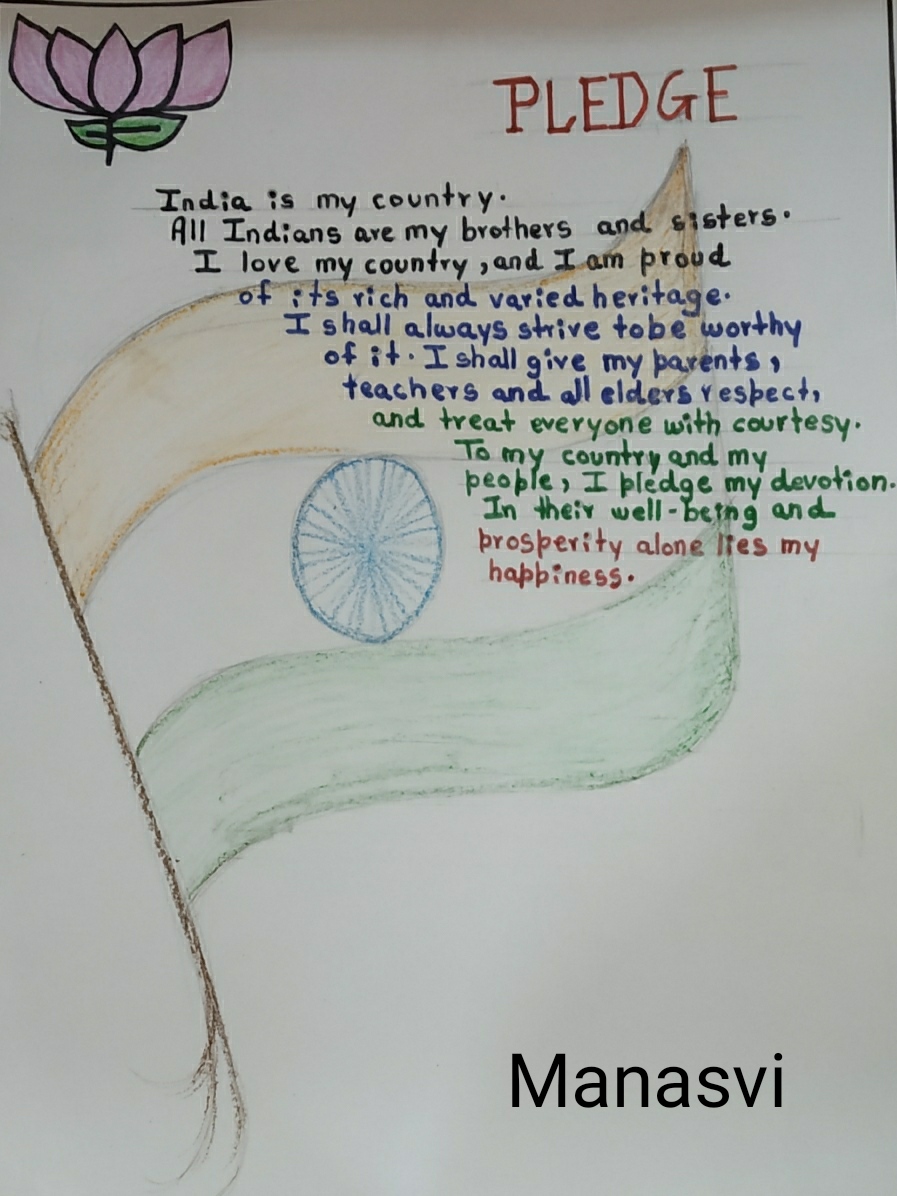 PLEDGE
India is my country.
All Indians are my brothers and sisters.
I love my country, and I am proud
of its rich and varied heritage.
I shall always strive tobe worthy
of it. I shall give my parents,
teachers and all elders respect,
and treat everyone with courtesy.
To my country and my
people, I pledge my devotion.
In their well-being and
prosperity alone lies my
happiness.
Manasvi